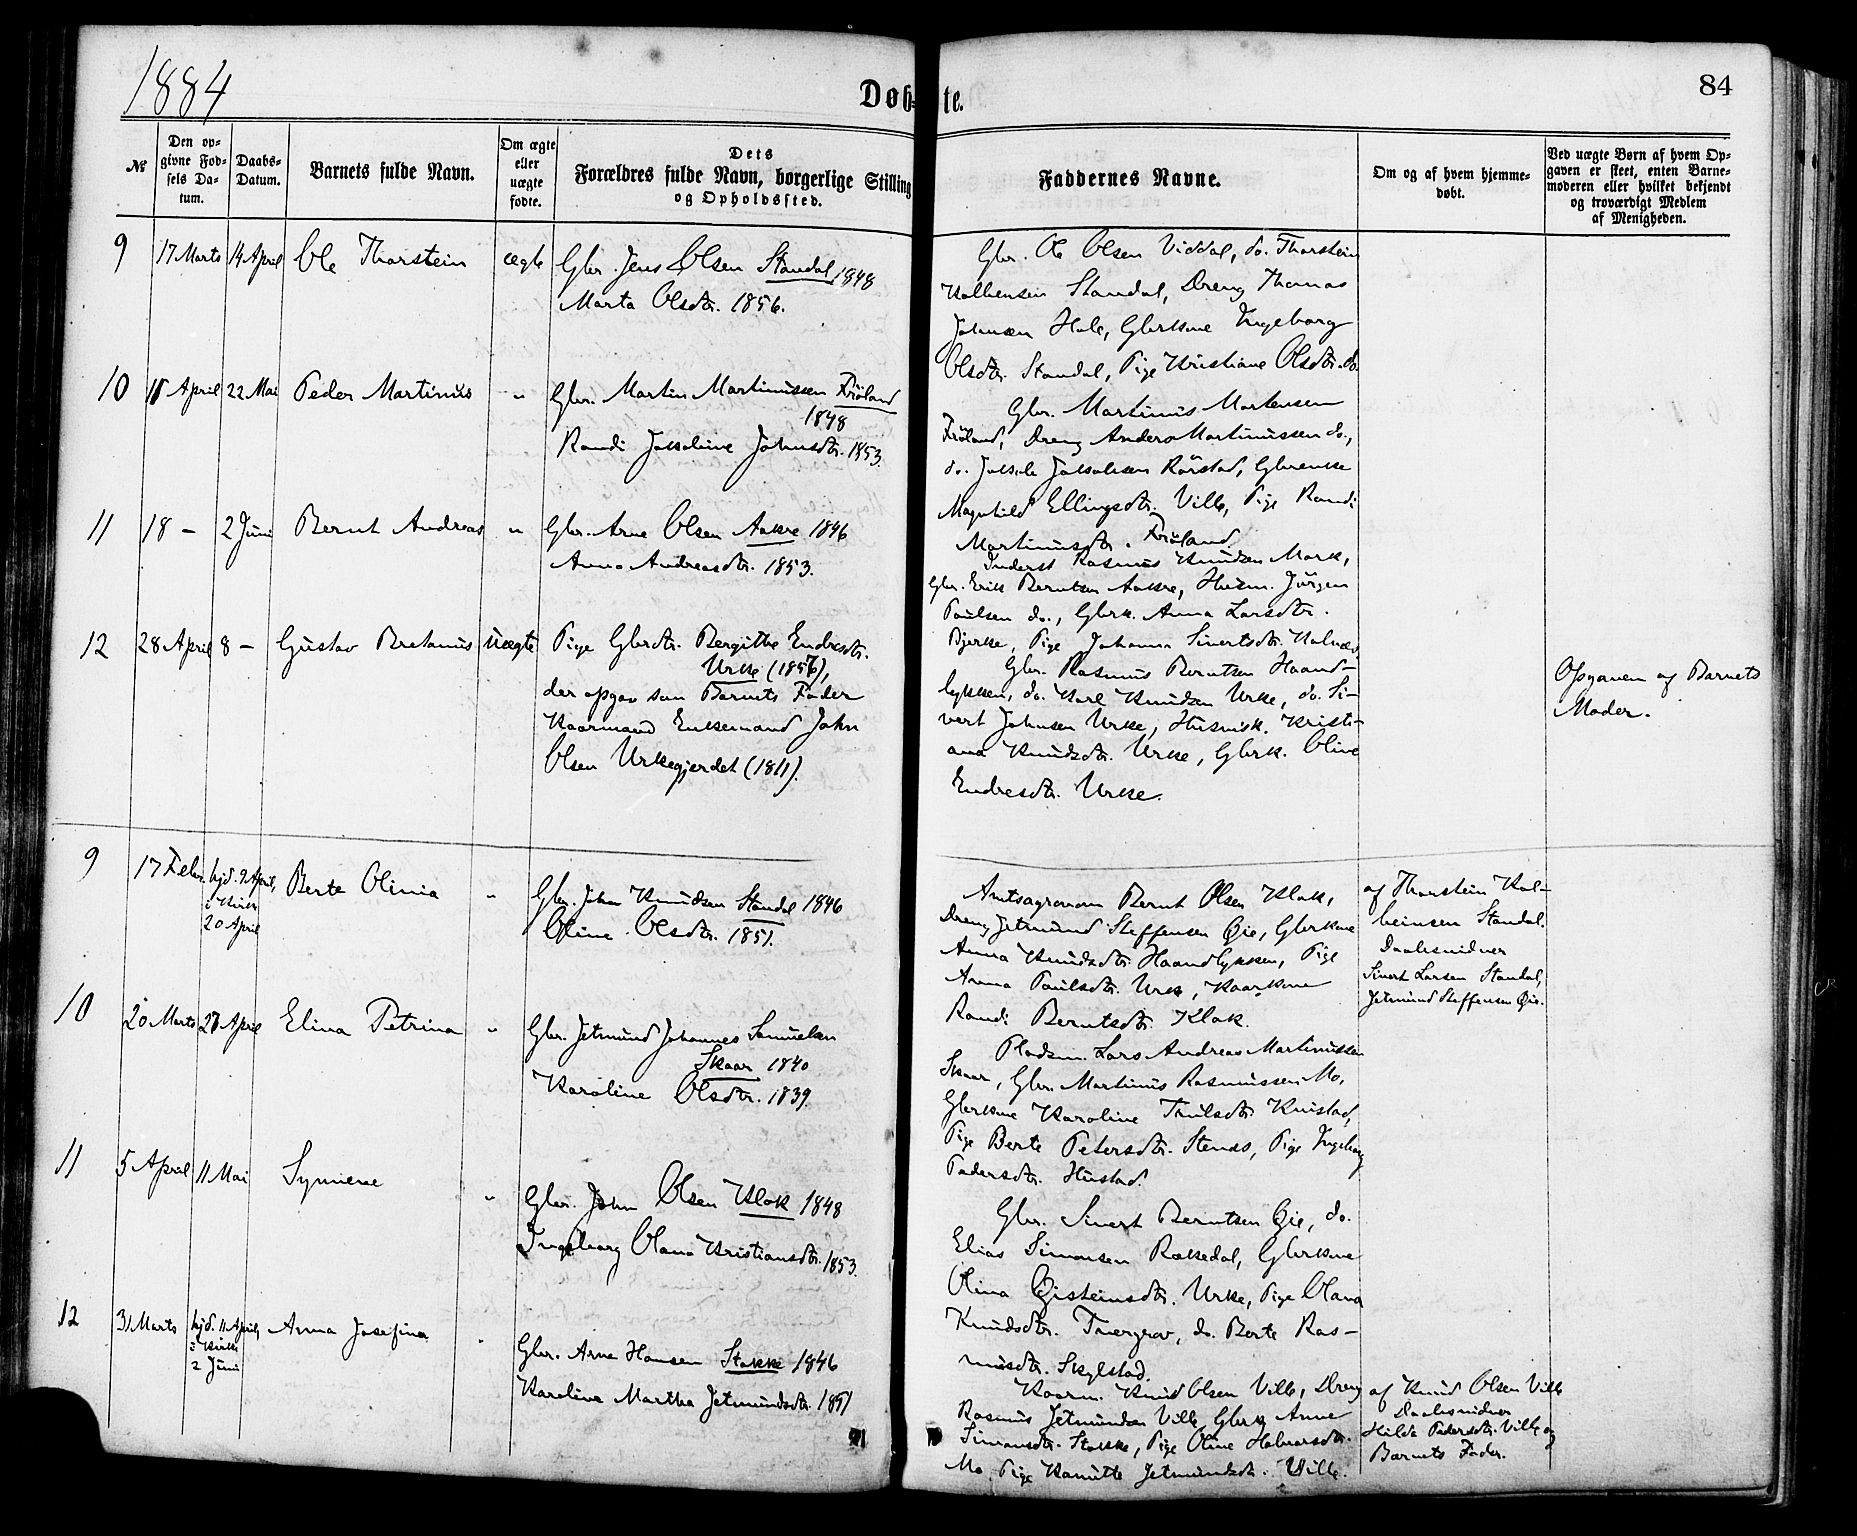 1884
Døbte.
84
№
Den op-
givne Fød-
sels Da-
tum.
Daabs-
Datum.
Barnets fulde Navn.
Om ægte
eller
uægte
fødte.
Dets
Forældres fulde Navn, borgerlige Stilling
og Opholdssted.
Faddernes Navne.
Om og af hvem hjemme-
døbt.
Ved uægte Børn af hvem Op-
gaven er skeet, enten Barne-
moderen eller hvilket bekjendt
og troværdigt Medlem
af Menigheden.
9 17 Marts 14 April Ole Thorstein ægte
Gbr. Jens Olsen Standal 1848
Marta Olsdtr. 1856.
Gbr. Ole Olsen Viddal, do. Thorstein
Kolbensen Standal, Dreng Thomas
Johnsen Hole, Gbrkone Ingeborg
Olsdtr. Standal, Pige Kristiane Olsdtr. do.
10 April 22 Mai Peder Martinus "
Gbr. Martin Martinussen Frøland
1848
Randi Jakobine Johnsdtr. 1853.
Gbr. Martinus Mortensen
Frøland, Dreng Anders Martinussen do.,
do. Jakob Jakobsen Rørstad, Gbrenke
Magnhild Ellingsdtr. Ville, Pige Randi
Martinusdtr. Frøland
11 18 – 2 Juni Bernt Andreas "
Gbr. Arne Olsen Aakre 1846
Anna Andreasdtr. 1853.
Inderst Rasmus Knudsen Mork,
Gbr. Erik Berntsen Aakre, Husm. Jørgen
Paulsen do., Gbrk. Anna Larsdtr.
Bjerke, Pige Johanna Sivertsdtr.
12 28 April 8 – Gustav Bretanus uægte
Pige Gbrdtr. Bergithe Endresdtr.
Urke (1856),
der opgav som Barnets Fader
Kaarmand Enkemand John
Olsen Urkegjerdet (1811).
Gbr. Rasmus Berntsen Haand-
lykken, do. Karl Knudsen Urke, do. Si-
vert Johnsen Urke, Kristi-
ana Knudsdtr. Urke, Gbrk. Oline
Endresdtr. Urke.
Opgaven af Barnets
Moder.
9 17 Febr. hjd. 9 April,
i Kirke
20 April
Berte Olinia "
Gbr. John Knudsen Standal 1846
Oline Olsdtr. 1851.
Amtsagronom Bernt Olsen Klok,
Dreng Jetmund Steffensen Øie, Gbrkone
Anna Knudsdtr. Haandlykken, Pige
Anna Paulsdtr. Urke, Kaarkone
Randi Berntsdtr. Klok.
af Thorstein Kol-
beinsen Standal.
Daabsvidner
Sivert Larsen Standal,
Jetmund Steffensen Øie.
10 20 Marts 27 April Elina Petrina "
Gbr. Jetmund Johannes Samuelsen
Skaar 1840
Karoline Olsdtr. 1839.
Pladsm. Lars Andreas Martinussen
Skaar, Gbr. Martinus Rasmussen Mo,
Gbrkone Karoline Paulsdtr.
Pige Berte Petersdtr. Stenes, Pige Ingeborg
Pedersdtr. Hustad.
11 5 April 11 Mai Synneve "
Gbr. John Olsen Klok 1848
Ingeborg Olana Kristiansdtr. 1853.
Gbr. Sivert Berntsen Øie, do.
Elias Simonsen Rekkedal, Gbrkone
Olina Øisteinsdtr. Urke, Pige Olana
Knudsdtr. Tuergrov, do. Berte Ras-
musdtr. Skylstad.
12 31 Marts hjd. 11 April,
i Kirke
2 Juni
Anna Josefina "
Gbr. Arne Hansen Stokke 1846
Karoline Martha Jetmundsdtr. 1851
Kaarm. Knud Olsen Ville, Dreng
Rasmus Jetmundsen Ville, Gbrk. Anne
Simonsdtr. Stokke, Pige Oline Halvorsdtr.
Mo, Pige Kanutte Jetmundsdtr. Ville.
af Knud Olsen Ville
Daabsvidner
Hilda Pedersdtr. Ville og
Barnets Fader.